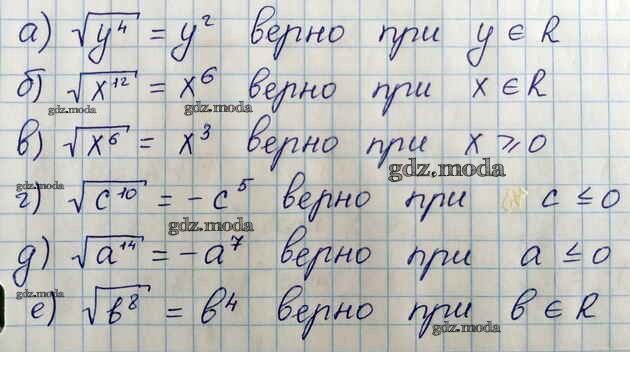 а) √y⁴ = y² верно при y ∈ R
б) √x¹² = x⁶ верно при x ∈ R
gdz.moda gdz.moda
в) √x⁶ = x³ верно при x ⩾ 0
gdz.moda
gdz.moda
г) √c¹⁰ = -c⁵ верно при c ≤ 0
gdz.moda
д) √a¹⁴ = -a⁷ верно при a ≤ 0
gdz.moda
е) √b⁸ = b⁴ верно при b ∈ R
gdz.moda